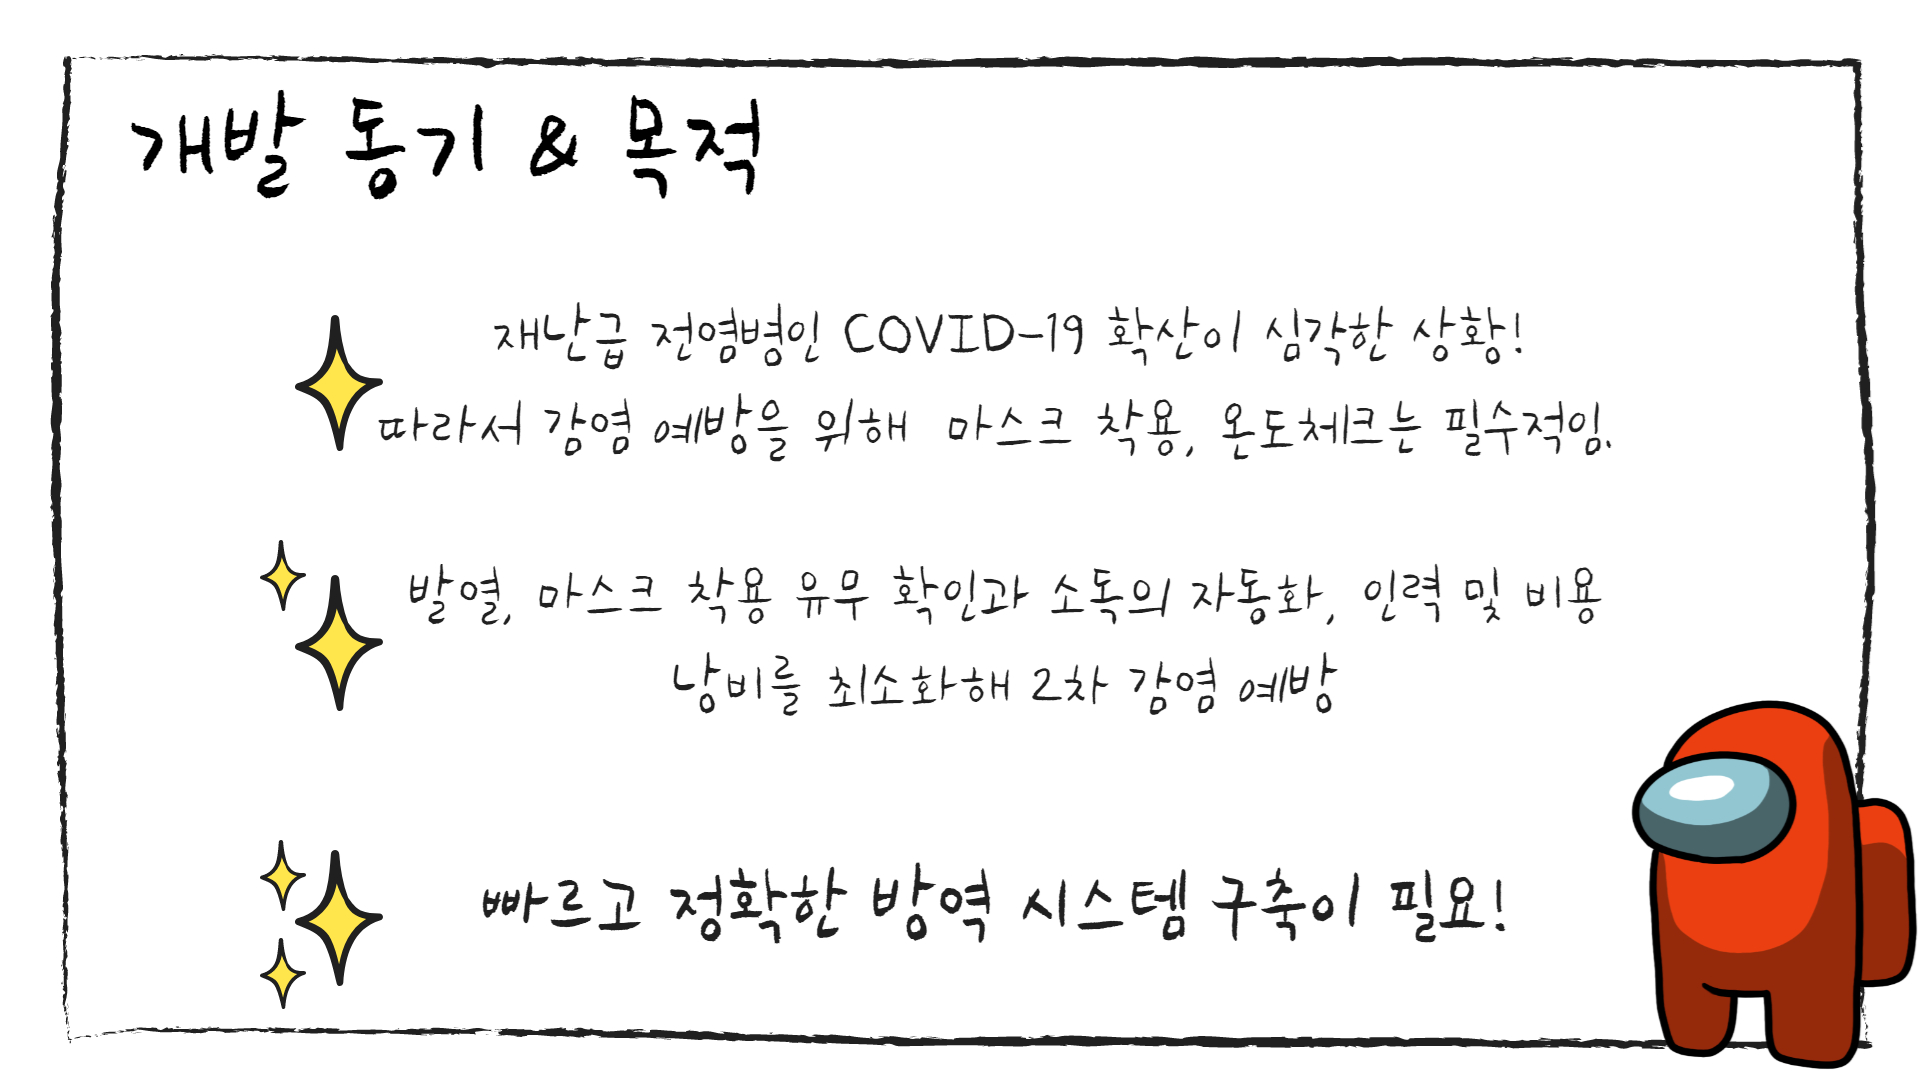 개발 동기 & 목적
재난급 전염병인 COVID-19 확산이 심각한 상황!
따라서 감염 예방을 위해 마스크 착용, 온도체크는 필수적임.
발열, 마스크 착용 유무 확인과 소독의 자동화, 인력 및 비용
낭비를 최소화해 2차 감염 예방
빠르고 정확한 방역 시스템 구축이 필요!